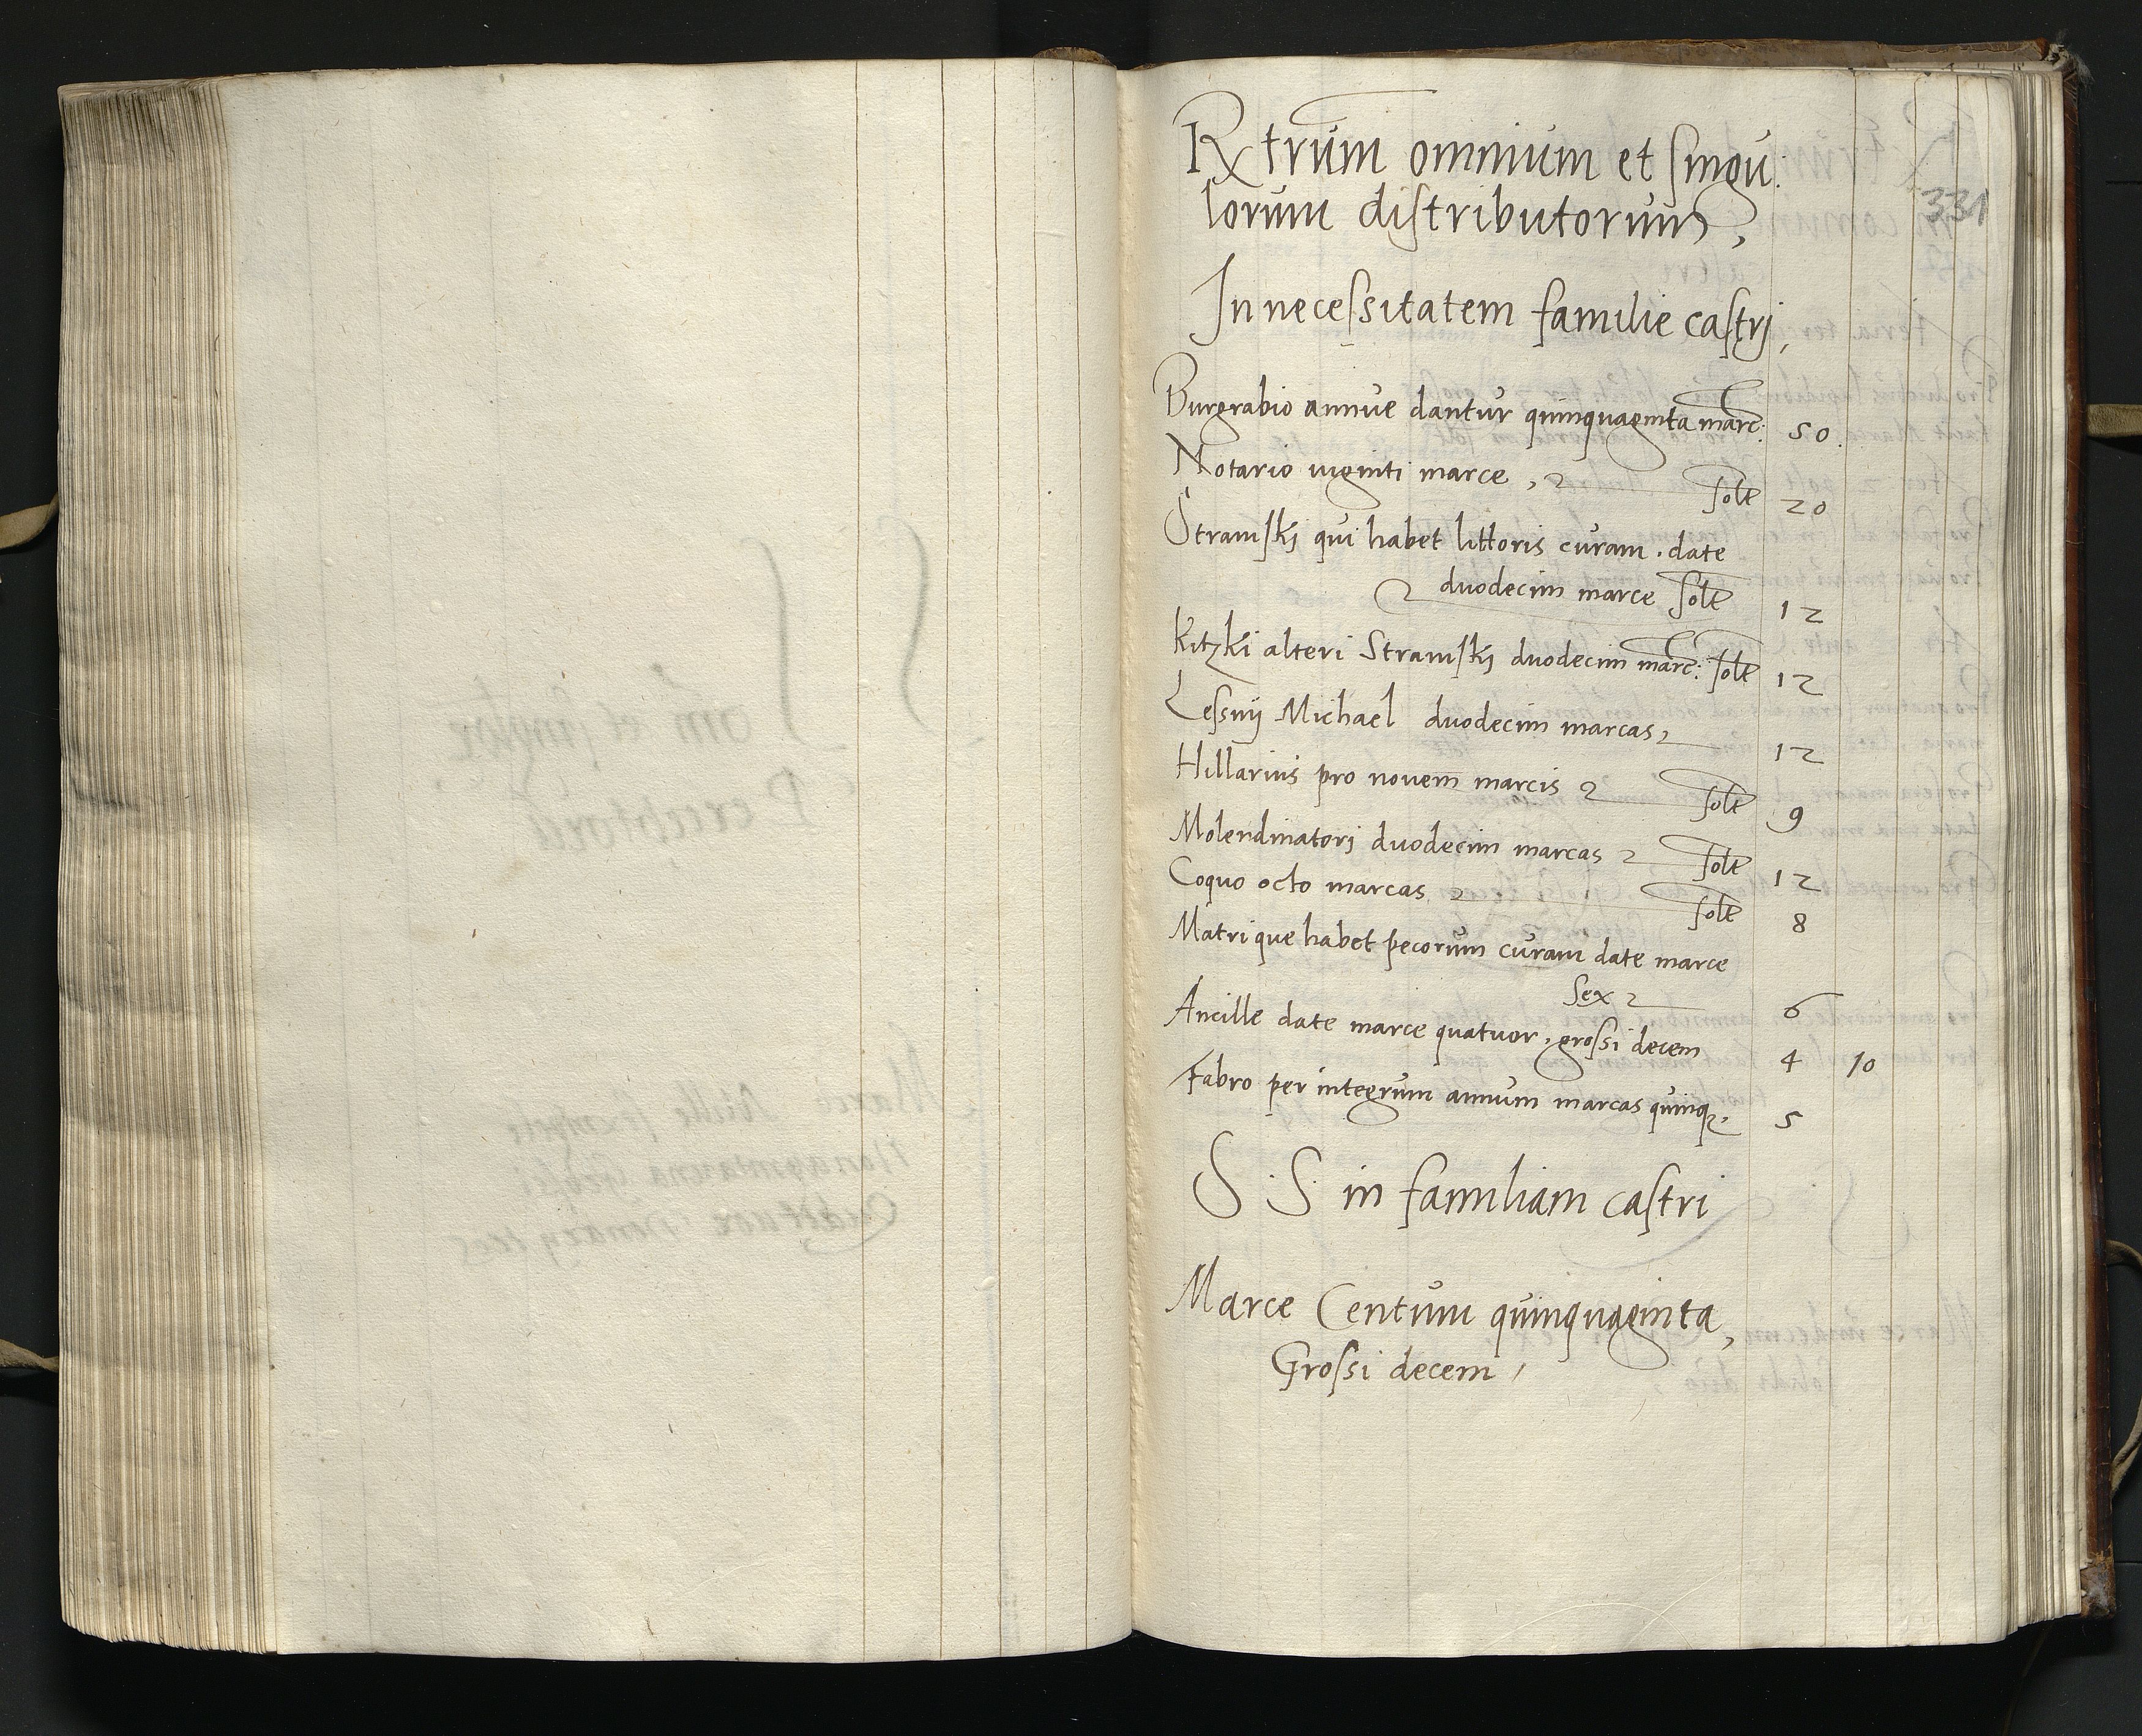 331
Rx trum omnium et singu:
lorum distributorum,
In necessitatem familie castrj,
Burgrabio annue dantur quinquaginta marc: 50.
Notario viginti marce, solt 20
Stramskj qui habet littoris curam. date
duodecim marce solt 12
Kitzki alteri Stramskj duodecim marc: solt 12
Lessnÿ Michael duodecim marcas 12
Hillarius pro novem marcis solt 9
Molendinatorj duodecim marcas solt 12
Coquo octo marcas solt 8
Matri que habet pecorum curam date marce
Sex 6
Ancille date marce quatuor, grossi decem 4 10
Fabro per integrum annum marcas quinqz. 5
S. S. in familiam castri
Marce Centum quinquaginta,
Grossi decem,